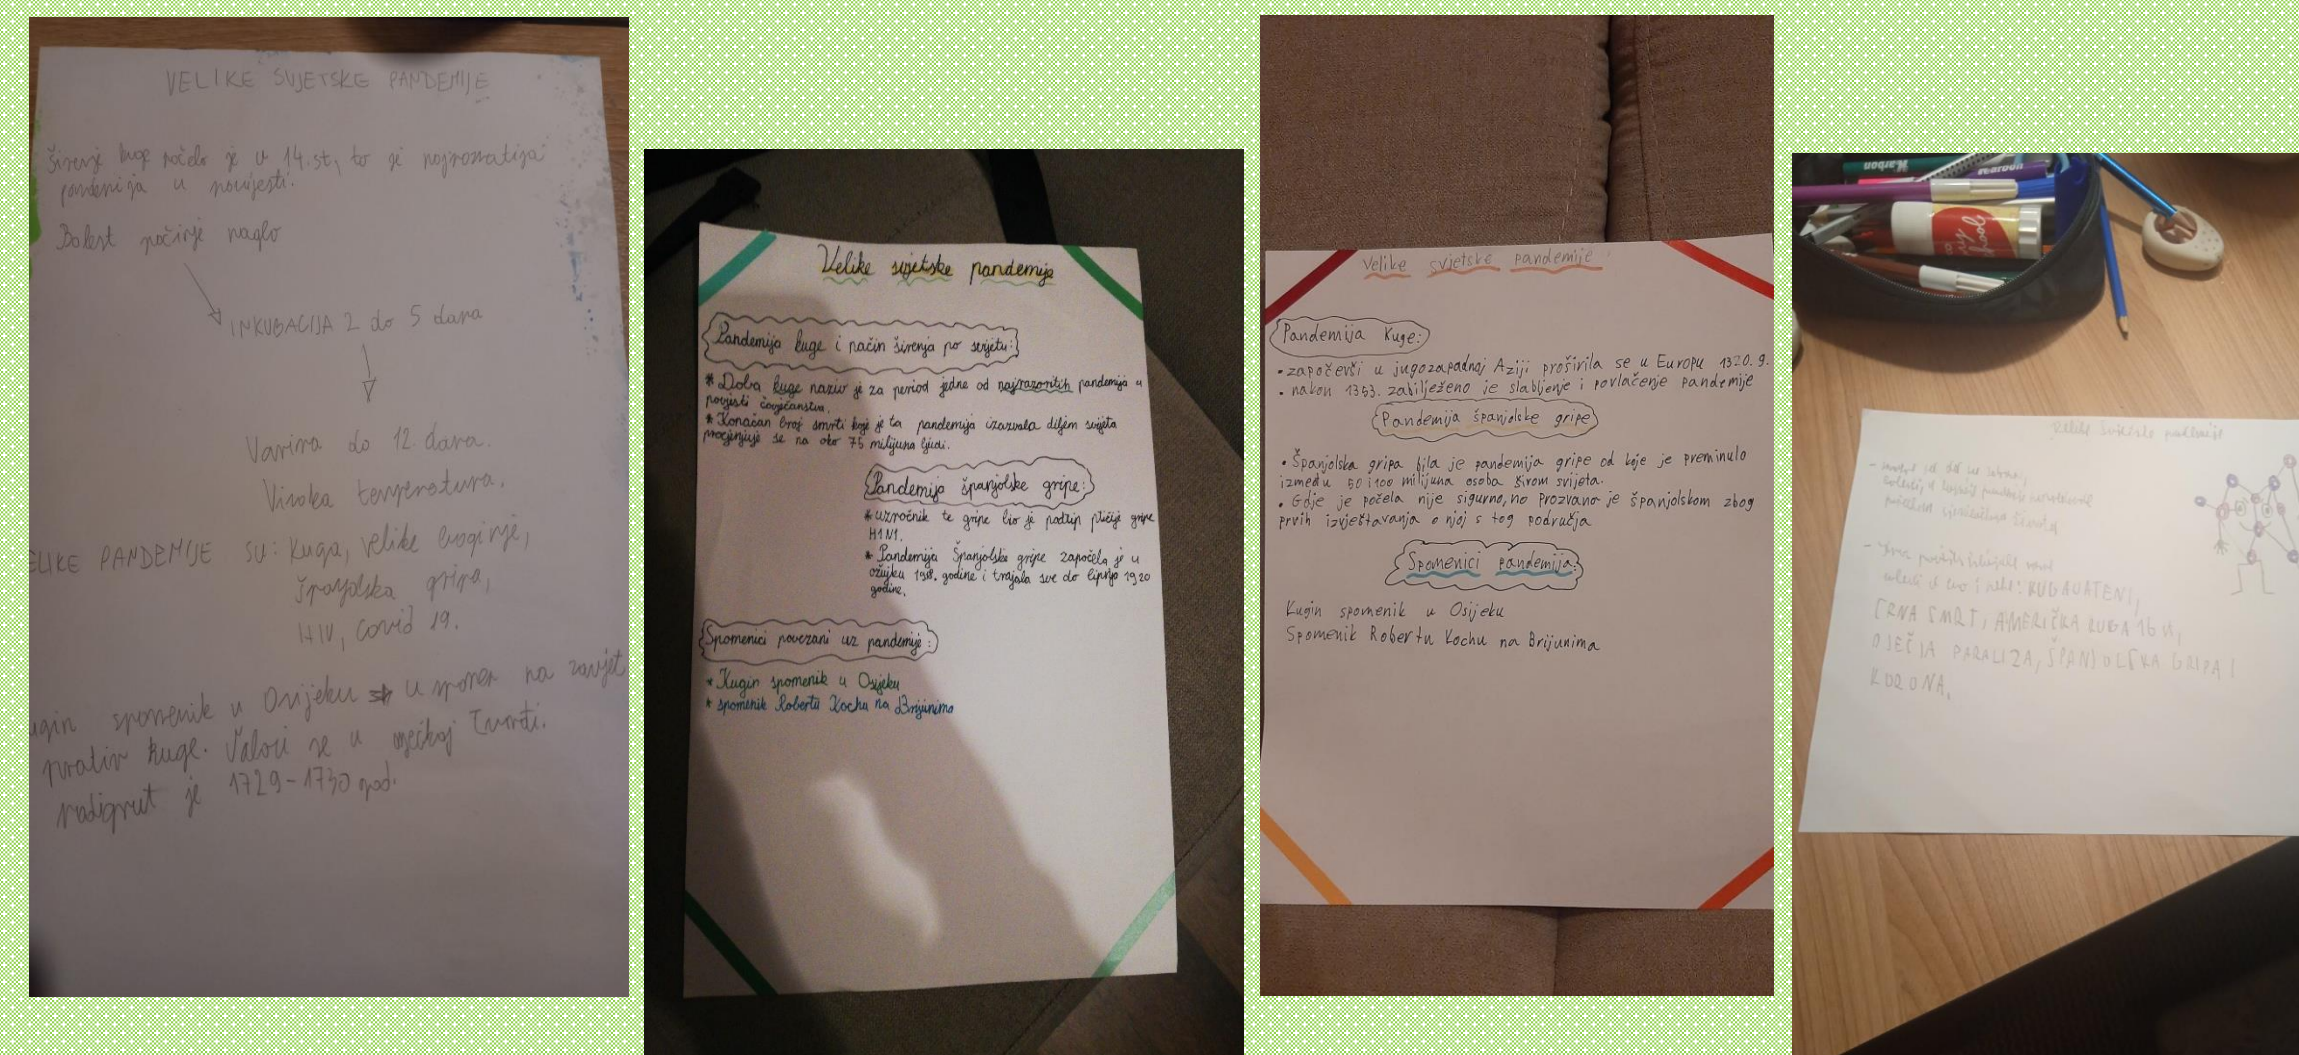 VELIKE SVJETSKE PANDEMIJE
Širenje kuge počelo je u 14.st, to je najpoznatija
pandemija u povijesti.
Bolest počinje naglo
INKUBACIJA 2 do 5 dana
Varira do 12. dana.
Visoka temperatura.
ELIKE PANDEMIJE su: Kuga, velike boginje,
španjolska gripa,
HIV, covid 19.
ugin spomenik u Osijeku u spomen na zavjet
protiv kuge. Nalazi se u osječkoj Tvrđi.
podignut je 1729-1730 god.
Velike svjetske pandemije
Pandemija kuge i način širenja po svijetu:
* Doba kuge naziv je za period jedne od najrazornijih pandemija u
povijesti čovječanstva.
* Konačan broj smrti koje je ta pandemija izazvala diljem svijeta
procjenjuje se na oko 75 milijuna ljudi.
Pandemija španjolske gripe:
* uzročnik te gripe bio je podtip ptičje gripe
H1N1.
* Pandemija Španjolske gripe započela je u
ožujku 1918. godine i trajala sve do lipnja 1920
godine.
Spomenici povezani uz pandemije:
* Kugin spomenik u Osijeku
* spomenik Robertu Kochu na Brijunima
Velike svjetske pandemije
Pandemija Kuge:
• započevši u jugozapadnoj Aziji proširila se u Europu 1320.g.
• nakon 1353. zabilježeno je slabljenje i povlačenje pandemije
Pandemija španjolske gripe
• Španjolska gripa bila je pandemija gripe od koje je preminulo
između 50 i 100 milijuna osoba širom svijeta.
• Gdje je počela nije sigurno, no prozvano je španjolskom zbog
prvih izvještavanja o njoj s tog područja
Spomenici pandemija
Kugin spomenik u Osijeku
Spomenik Robertu Kochu na Brijunima
Karbon
Karbon
school
CRNA SMRT, AMERIČKA KUGA 16 st,
DJEČJA PARALIZA, ŠPANJOLSKA GRIPA I
KORONA.